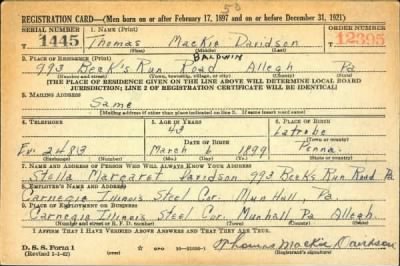 50
REGISTRATION CARD—(Men born on or after February 17, 1897 and on or before December 31, 1921)
SERIAL NUMBER 1. NAME (Print) ORDER NUMBER
T 1445 Thomas Mackie Davidson T 12395
(First) (Middle) (Last)
2. PLACE OF RESIDENCE (Print) BALDWIN
993 Beck's Run Road Allegh Pa
(Number and street) (Town, township, village, or city) (County) (State)
[THE PLACE OF RESIDENCE GIVEN ON THE LINE ABOVE WILL DETERMINE LOCAL BOARD
JURISDICTION; LINE 2 OF REGISTRATION CERTIFICATE WILL BE IDENTICAL]
3. MAILING ADDRESS
Same
[Mailing address if other than place indicated on line 2. If same insert word same]
4. TELEPHONE 5. AGE IN YEARS 6. PLACE OF BIRTH
43 Latrobe
DATE OF BIRTH (Town or county)
2483 March 6 1899 Penna.
(Exchange) (Number) (Mo.) (Day) (Yr.) (State or country)
7. NAME AND ADDRESS OF PERSON WHO WILL ALWAYS KNOW YOUR ADDRESS
Stella Margaret Davidson 993 Beck's Run Road Pa
8. EMPLOYER'S NAME AND ADDRESS
Carnegie Illinois Steel Cor. Munhall, Pa
9. PLACE OF EMPLOYMENT OR BUSINESS
Carnegie Illinois Steel Cor. Munhall Pa Allegh.
(Number and street or R. F. D. number) (Town) (County) (State)
I AFFIRM THAT I HAVE VERIFIED ABOVE ANSWERS AND THAT THEY ARE TRUE.
D. S. S. Form 1 GPO Thomas Mackie Davidson
(Revised 1-1-42) (Registrant's signature)